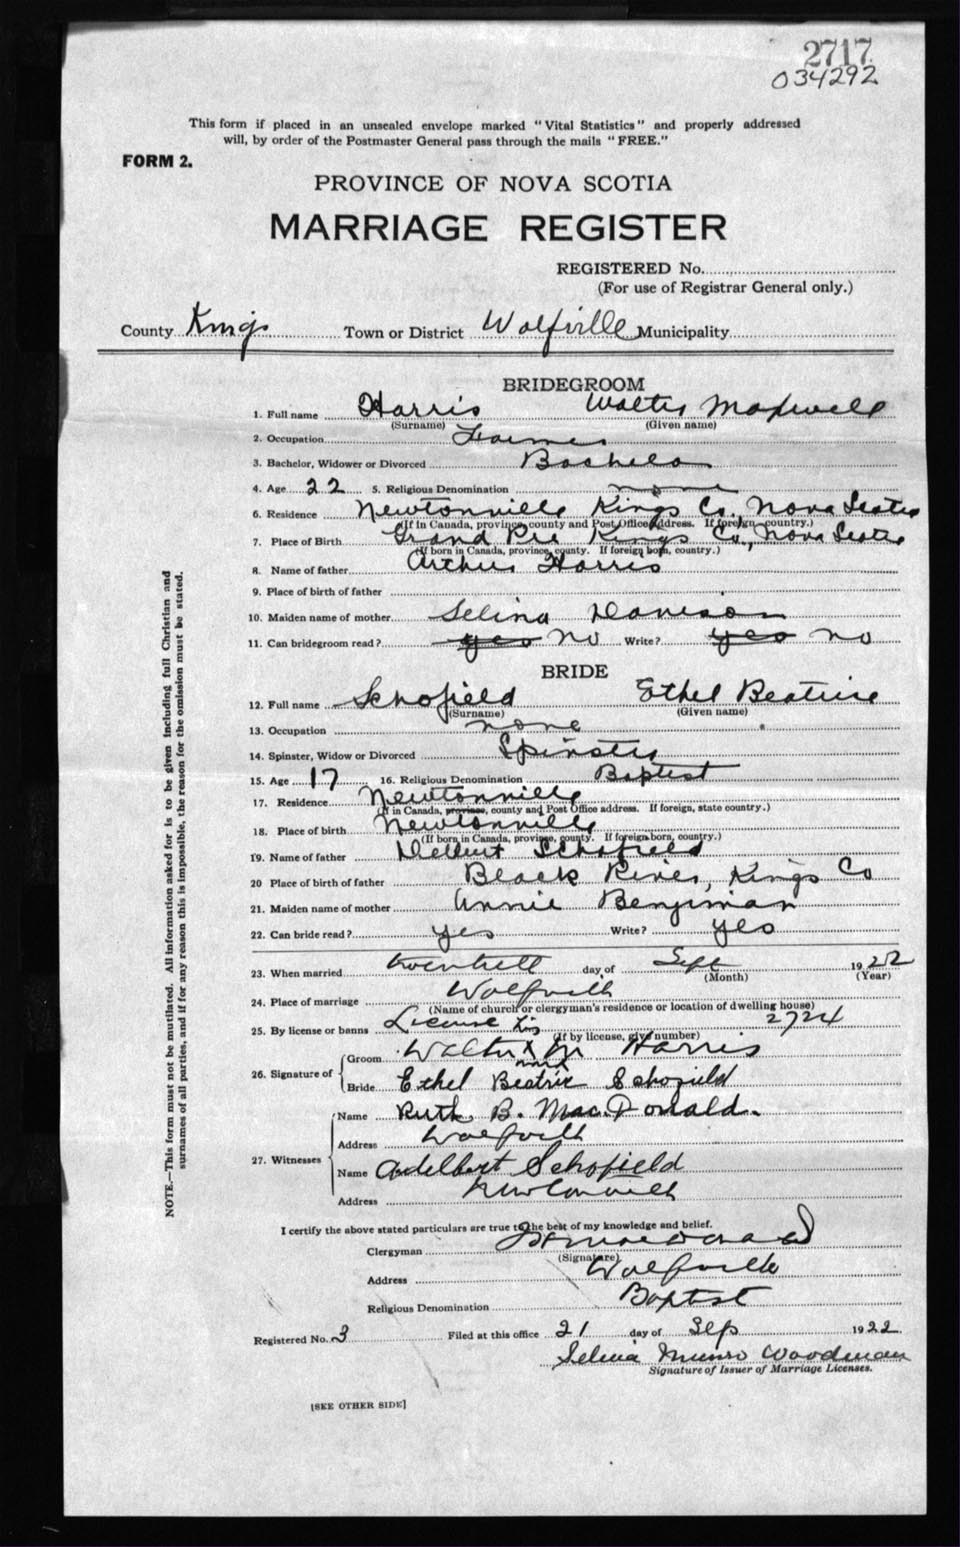 2717
034292
This form if placed in an unsealed envelope marked "Vital Statistics" and properly addressed
will, by order of the Postmaster General pass through the mails "FREE."
FORM 2.
PROVINCE OF NOVA SCOTIA
MARRIAGE REGISTER
REGISTERED No.
(For use of Registrar General only.)
County Kings Town or District Wolfville Municipality
BRIDEGROOM
1. Full name Harris Walter Maxwell
(Surname) (Given name)
2. Occupation Farmer
3. Bachelor, Widower or Divorced Bachelor
4. Age 22 5. Religious Denomination none
6. Residence Newtonville Kings Co, Nova Scotia
(If in Canada, province, county and Post Office address. If foreign, country.)
7. Place of Birth Grand Pre Kings Co, Nova Scotia
(If born in Canada, province, county. If foreign born, country.)
8. Name of father Arthur Harris
9. Place of birth of father
10. Maiden name of mother Selina Davison
11. Can bridegroom read? yes no Write? yes no
BRIDE
12. Full name Schofield Ethel Beatrice
(Surname) (Given name)
13. Occupation none
14. Spinster, Widow or Divorced Spinster
15. Age 17 16. Religious Denomination Baptist
17. Residence Newtonville
(If in Canada, province, county and Post Office address. If foreign, state country.)
18. Place of birth Newtonville
(If born in Canada, province, county. If foreign born, country.)
19. Name of father Schofield
20 Place of birth of father Black River, Kings Co
21. Maiden name of mother Annie Benjiman
22. Can bride read? yes Write? yes
23. When married day of Sept 1922
(Month) (Year)
24. Place of marriage Wolfville
(Name of church or clergyman's residence or location of dwelling house)
25. By license or banns License 2724
(If by license, give number)
26. Signature of
Groom Walter X M Harris
mark
Bride Ethel Beatrice Schofield
27. Witnesses
Name Ruth B. MacDonald.
Address Wolfville
Name Adelbert Schofield
Address Newtonville
I certify the above stated particulars are true to the best of my knowledge and belief.
Clergyman
(Signature)
Address Wolfville
Religious Denomination Baptist
Registered No. 3 Filed at this office 21 day of Sep 1922.
Selina Munro Woodman
Signature of Issuer of Marriage Licenses.
[SEE OTHER SIDE]
NOTE.—This form must not be mutilated. All information asked for is to be given including full Christian and
surnames of all parties, and if for any reason this is impossible, the reason for the omission must be stated.